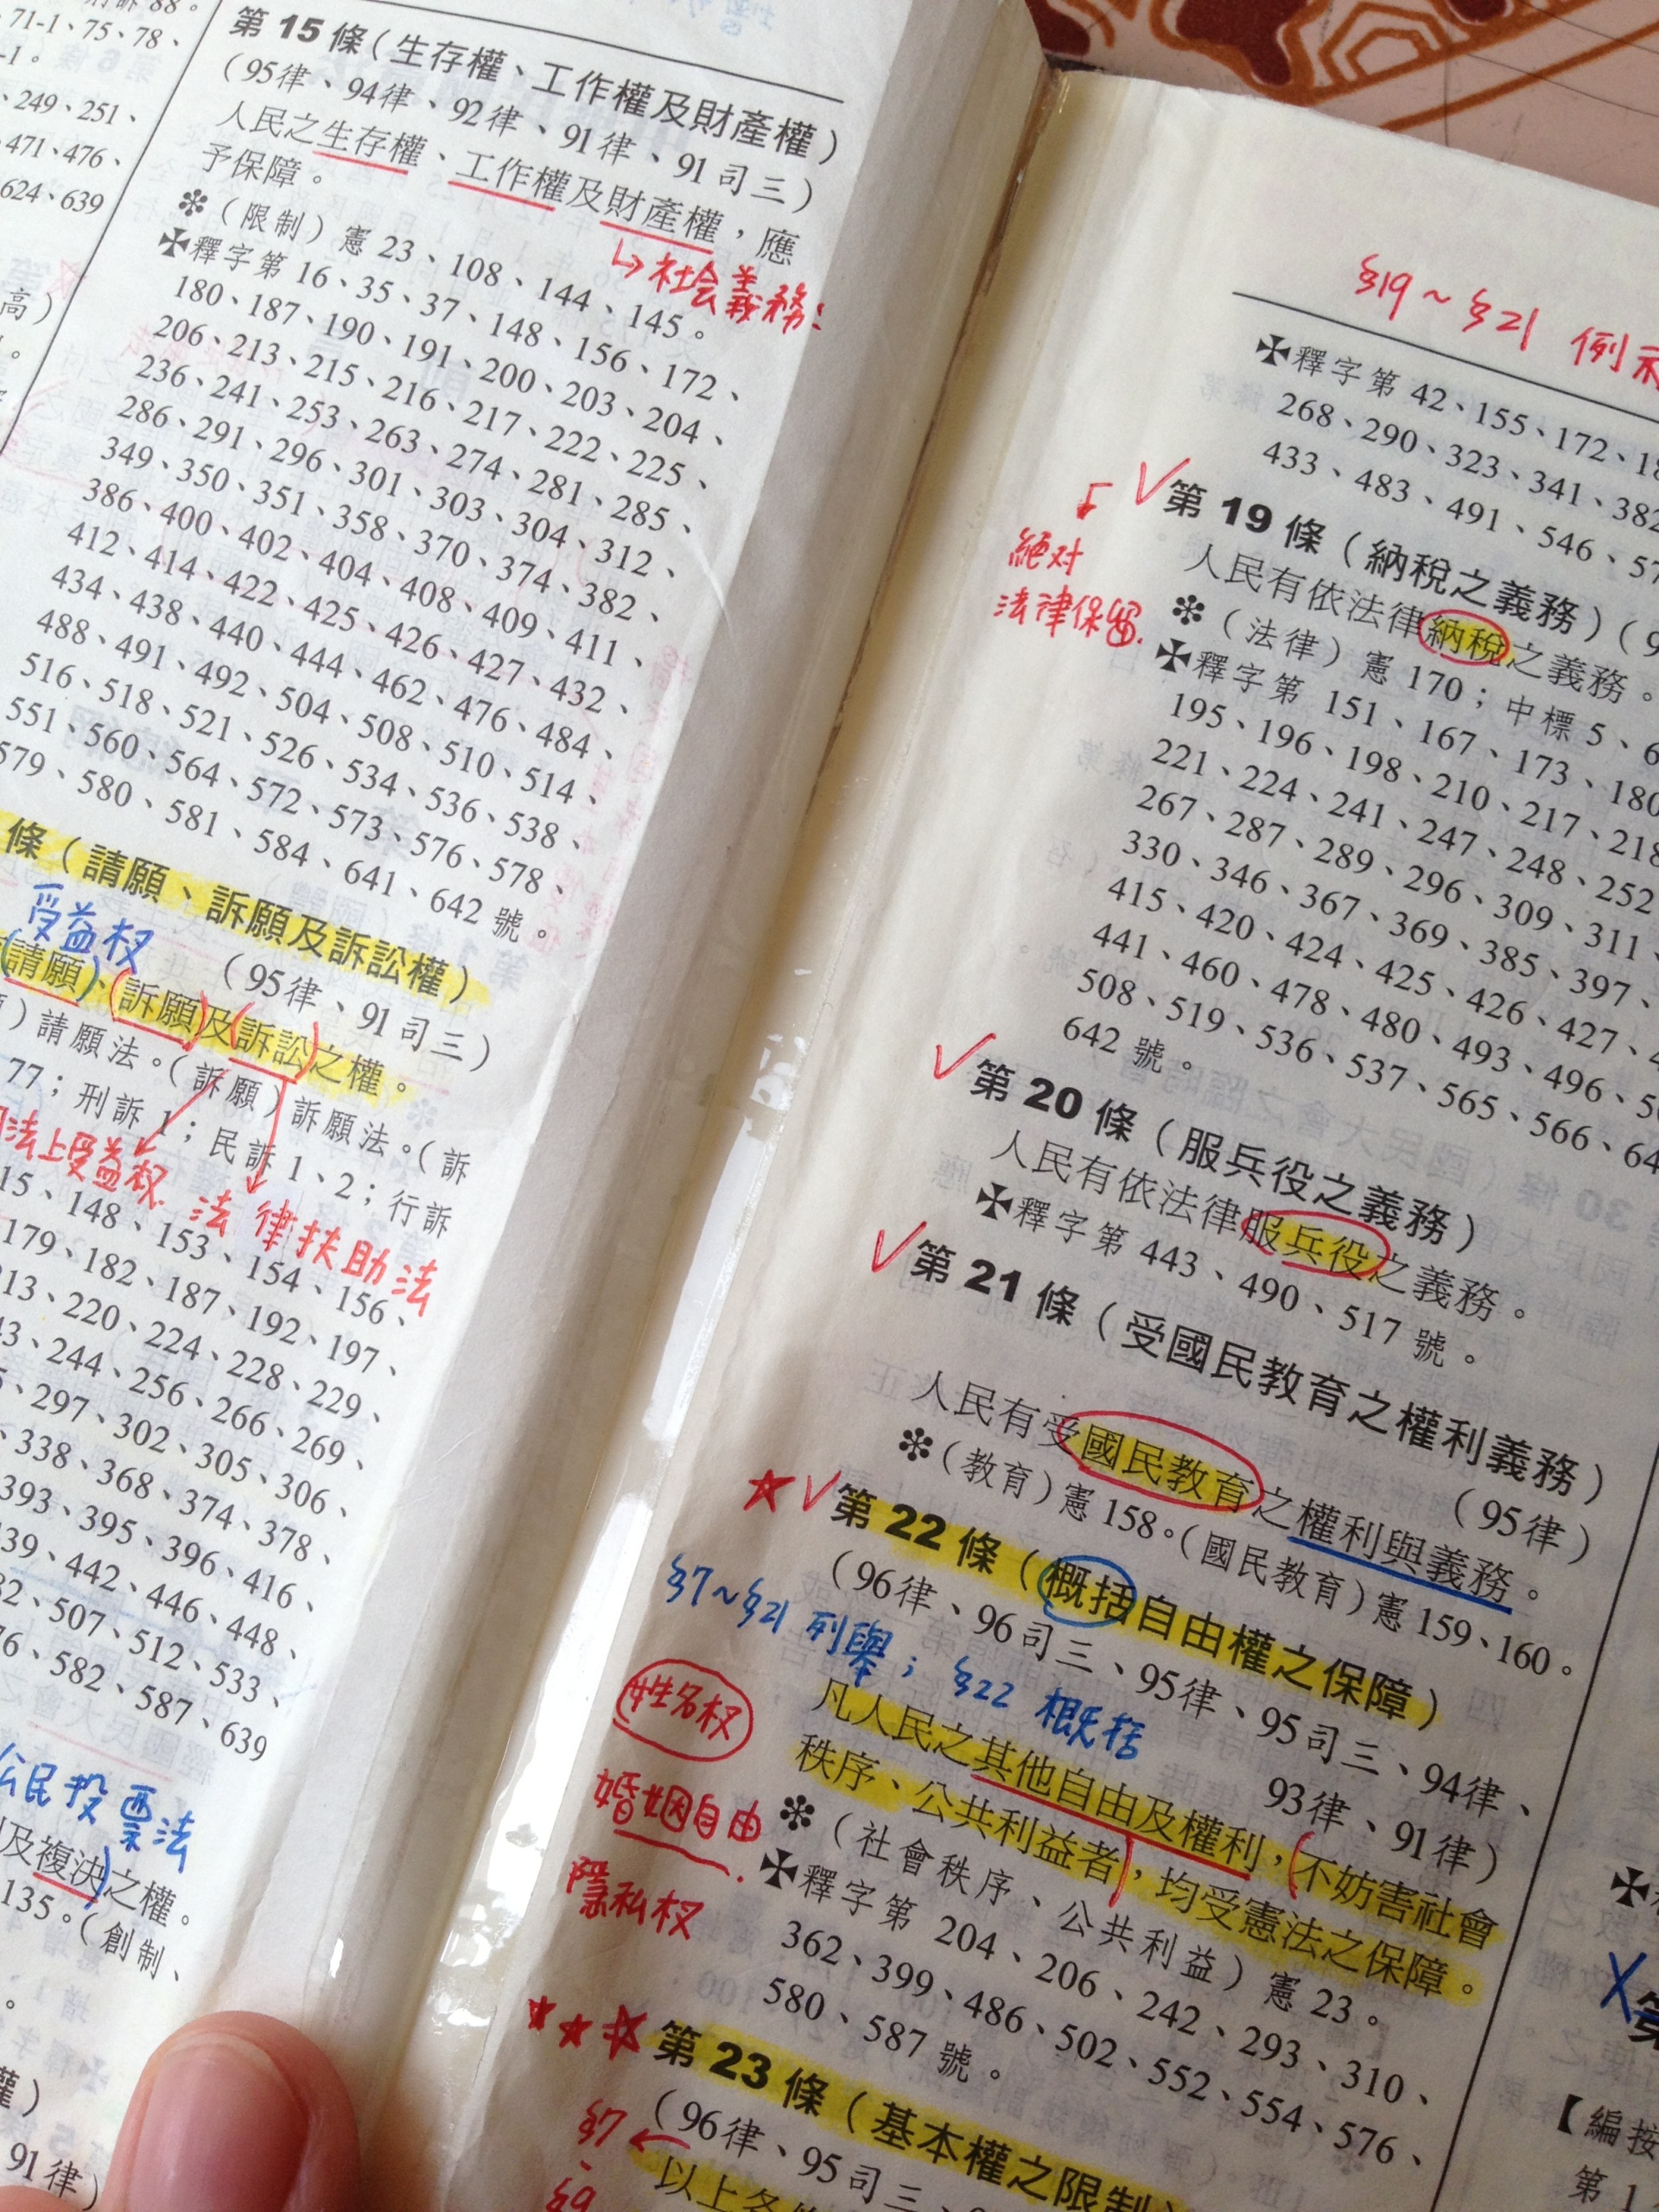 71-1、75、78、
249、251、
471、476、
624、639
高）
第 15 條（生存權、工作權及財產權）
（95律、94律、92律、91律、91司三）
人民之生存權、工作權及財產權，應
予保障。
↳社会義務：
❇（限制）憲 23、108、144、145。
✠釋字第 16、35、37、148、156、172、
180、187、190、191、200、203、204、
206、213、215、216、217、222、225、
236、241、253、263、274、281、285、
286、291、296、301、303、304、312、
349、350、351、358、370、374、382、
386、400、402、404、408、409、411、
412、414、422、425、426、427、432、
434、438、440、444、462、476、484、
488、491、492、504、508、510、514、
516、518、521、526、534、536、538、
551、560、564、572、573、576、578、
579、580、581、584、641、642 號。
條（請願、訴願及訴訟權）
受益权
（95律、91司三）
請願、訴願及訴訟之權。
）請願法。（訴願）訴願法。（訴
77；刑訴 1；民訴 1、2；行訴
法上受益权 法律扶助法
15、148、153、154、156、
179、182、187、192、197、
13、220、224、228、229、
244、256、266、269、
297、302、305、306、
338、368、374、378、
393、395、396、416、
39、442、446、448、
507、512、533、
582、587、639
公民投票法
及複決之權。
135。（創制、
91律）
§19～§21 例示
✠釋字第 42、155、172、
268、290、323、341、382
433、483、491、546、
第 19 條（納稅之義務）
絕対
法律保留.
人民有依法律納稅之義務。
❇（法律）憲 170；中標 5、6
✠釋字第 151、167、173、180
195、196、198、210、217、218
221、224、241、247、248、252
267、287、289、296、309、311、
330、346、367、369、385、397、
415、420、424、425、426、427、
441、460、478、480、493、496、
508、519、536、537、565、566、
642 號。
第 20 條（服兵役之義務）
人民有依法律服兵役之義務。
✠釋字第 443、490、517 號。
第 21 條（受國民教育之權利義務）
（95律）
人民有受國民教育之權利與義務。
❇（教育）憲 158。（國民教育）憲 159、160。
第 22 條（概括自由權之保障）
（96律、96司三、95律、95司三、94律、
93律、91律）
§7～§21 列舉；§22 概括
凡人民之其他自由及權利，不妨害社會
秩序、公共利益者，均受憲法之保障。
姓名权
婚姻自由.
隱私权
❇（社會秩序、公共利益）憲 23。
✠釋字第 204、206、242、293、310、
362、399、486、502、552、554、576、
580、587 號。
第 23 條（基本權之限制）
（96律、95司三、
§7
以上各
【編按